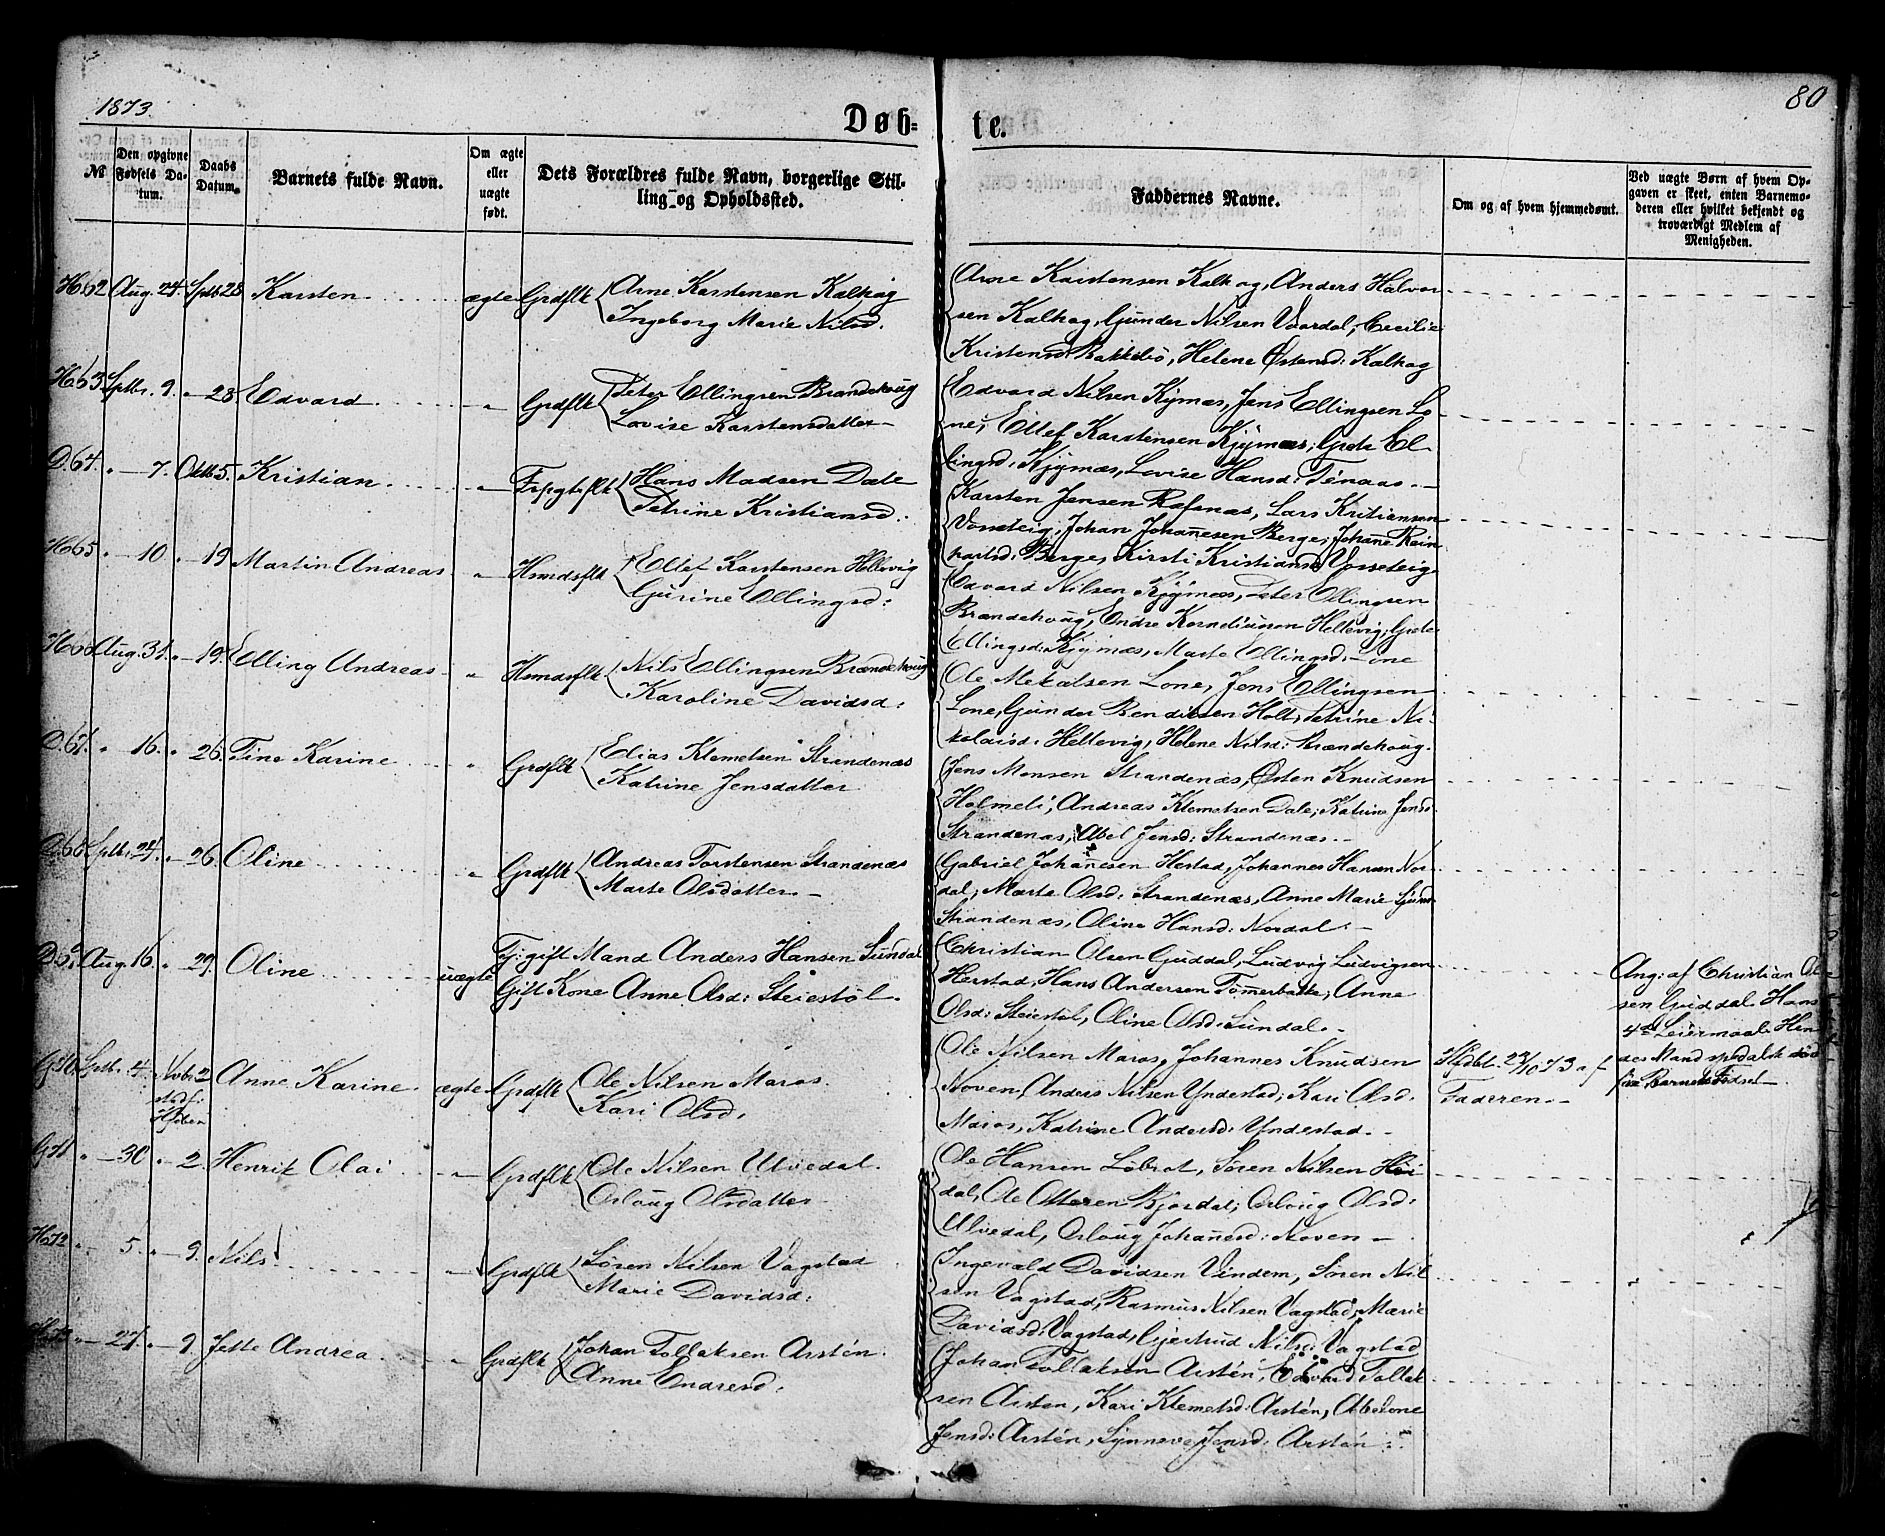 1873.
80
Døb=
te.
№
Den opgivne Fødsels Datum.
Daabs Datum.
Barnets fulde Navn.
Om ægte eller uægte født.
Dets Forældres fulde Navn, borgerlige Stilling og Opholdssted.
Faddernes Navne.
Om og af hvem hjemmedøbt.
Ved uægte Børn af hvem Opgaven er skeet, enten Barnemoderen eller hvilket bekjendt og troværdigt Medlem af Menigheden.
H.62 Aug. 24. Sptb 28 Karsten ægte Grdflk Arne Karstensen Kalhag
Ingeborg Marie Nilsd.
Arne Karstensen Kalhag, Anders Halvor
sen Kalhag, Gunder Nilsen Vaardal, Cecilie
Kristensd: Bakkebø, Helene Østensd: Kalhag
H.63. Sptbr. 9. " 28. Edvard " Grdflk Peter Ellingsen Brændehoug
Lovise Karstensdatter
Edvard Nilsen Kjymæs, Jens Ellingsen Lo
ne, Ellef Karstensen Kjymæs, Grete El
lingsd: Kjymæs, Lovise Hansd:
D.64. " 7. Oktb 5. Kristian " Hans Madsen Dale
Petrine Kristiansd:
Karsten Jensen Rafsnæs, Lars Kristiansen
Vorseteig, Johan Johanesen Berge, Johane Rein
hartsd: Berge, Kirsti Kristiansd Vorseteig
H.65 " 10 " 19 Martin Andreas " Hsmdsflk Ellef Karstensen Hellevig
Gurine Ellingsd:
Edvard Nilsen Kjymæs, Peter Ellingsen
Brændehoug, Endre Korneliussen Hellevig, Grete
Ellingsd: Kjymæs, Marte Ellingsd:
H.66 Aug. 31. " 19. Elling Andreas " Hsmdsflk Nils Ellingsen Brændehoug
Karoline Davidsd:
Ole Mekalsen Lone, Jens Ellingsen
Lone, Gunder Bendiksen Holt, Petrine Ni
kolaisd: Hellevig, Helene Nilsd: Brændehoug.
D.67. " 16. " 26. Tine Karine " Grdflk Elias Klemetsen Strandenæs
Katrine Jensdatter
Jens Monsen Strandenæs, Østen Knudsen
Holmeli, Andreas Klemetsen Dale, Katrine Jensd:
Strandenæs, Abel Jensd: Strandenæs.
D.68 Sptbr. 24. " 26. Oline " Grdflk Andreas Torstensen Strandenæs
Marte Olsdatter
Gabriel Johanesen Herstad, Johannes Hansen Nor
dal, Marte Olsd: Strandenæs, Anne Marie
Strandenæs, Oline Hansd: Nordal.
D.69 Aug. 16. " 29. Oline uægte Fj: gift Mand Anders Hansen Sundal
Gift Kone Anne Olsd: Steiestøl.
Christian Olsen Guddal, Ludvig Ludvigsen
Herstad, Hans Andersen Tømerbakke, Anne
Olsd: Steiestøl, Oline Olsd: Sundal.
Ang: af Christian Ol
sen Guddal. Hans
4de Leiermaal. Hen
des Mand spedalsk død
før Barnets Fødsel
G.70. Sptbr. 4. Novbr 2
stadf.
Hjdåben
Anne Karine ægte Grdflk Ole Nilsen Maros.
Kari Olsd.
Ole Nilsen Maros, Johannes Knudsen
Noven, Anders Nilsen Yndestad, Kari Olsd.
Maros, Katrine Andersd: Yndestad.
Hjdbt. 23/10 73 af
Faderen.
G.71 " 30 " 2. Henrik Olai " Grdflk Ole Nilsen Ulvedal.
Orloug Olsdatter
Ole Hansen Løbrot, Søren Nilsen Høi
dal, Ole Ottesen Bjørdal, Orloug Olsd:
Ulvedal, Orloug Johanesd: Noven
H.72 " 5. " 9. Nils " Grdflk Søren Nilsen Vagstad
Marie Davidsd:
Ingevald Davidsen Vindem, Søren Nil
sen Vagstad, Rasmus Nilsen Vagstad, Marie
Davidsd: Vagstad, Gjertrud Nilsd: Vagstad
H.73 " 27. " 9. Jette Andrea " Grdflk Johan Tollaksen Arstén.
Anne Endresd:
Johan Tollaksen Arstén, Edvard Tollak
sen Arsten, Kari Klemetsd: Arstén, Abelone
Jensd: Arstén, Synneve Jensd: Arstén.